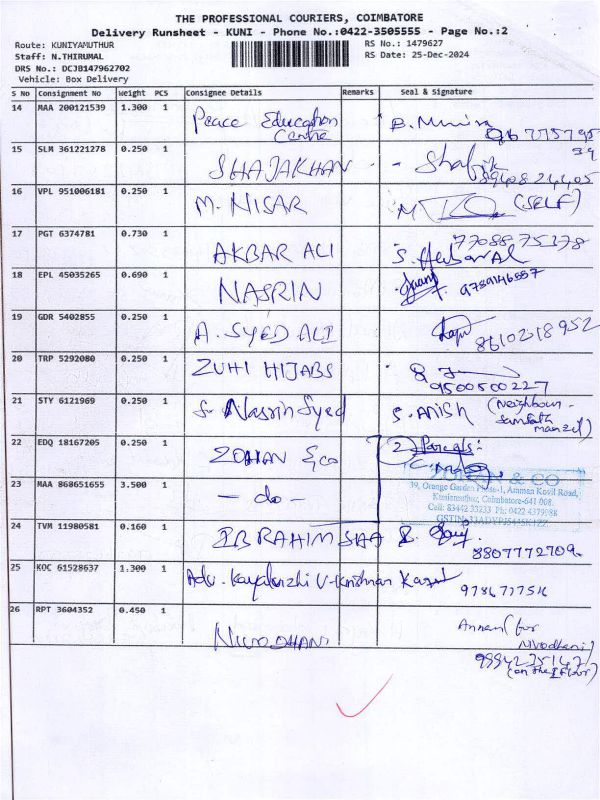 THE PROFESSIONAL COURIERS, COIMBATORE
Delivery Runsheet - KUNI - Phone No.:0422-3505555 - Page No.:2
Route: KUNIYAMUTHUR RS No.: 1479627
Staff: N.THIRUMAL RS Date: 25-Dec-2024
DRS No.: DCJB147962702
Vehicle: Box Delivery
S No Consignment No Weight PCS Consignee Details Remarks Seal & Signature
14 MAA 200121539 1.300 1 Peace Education
Centre
15 SLM 361221278 0.250 1 SHAJAKHAN
16 VPL 951006181 0.250 1 M. NISAR (SELF)
17 PGT 6374781 0.730 1 AKBAR ALI 7708875378
18 EPL 45035265 0.690 1 NASRIN 9789146557
19 GDR 5402855 0.250 1 A. SYED ALI 8610218952
20 TRP 5292080 0.250 1 ZUHI HIJABS
9500500227
21 STY 6121969 0.250 1 S. Nasrin Syed S. ANISH (Neighbour -
Manzil)
22 EDQ 18167205 0.250 1 ZOHAN & CO 2 Parcels:
& CO
23 MAA 868651655 3.500 1 - do -
39, Orange Garden Phase-1, Amman Kovil Road,
Kuniamuthur, Coimbatore-641 008.
Cell: 83442 33233 Ph: 0422 4379988
24 TVM 11980581 0.160 1 IBRAHIM SHA
8807772709
25 KOC 61528637 1.300 1 Adv. V-Krishnan
9786777516
26 RPT 3604352 0.450 1 NIVODHANI (for
Nivodhani)
(on the I Floor)